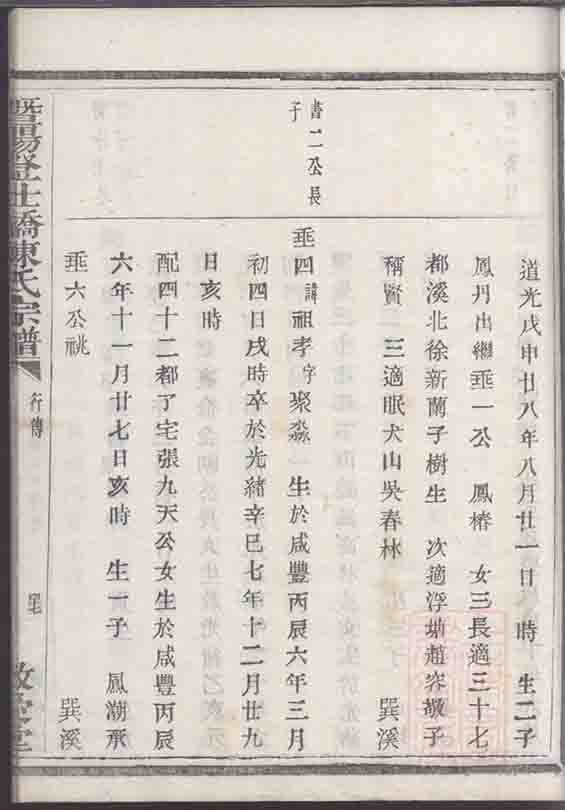 道光戊申廿八年八月廿一日　時　生二子
鳳丹出繼垂一公　鳳椿　女三長適三十七
都溪北徐新蘭子樹生　次適浮塘趙容敬子
稱賢　三適眠犬山吳春林　巽溪
書二公長
子
垂四諱祖孝字聚淼一生於咸豐丙辰六年三月
初四日戌時卒於光緒辛巳七年十二月廿九
日亥時
配四十二都了宅張九天公女生於咸豐丙辰
六年十一月廿七日亥時　生一子　鳳潮承
垂六公祧　巽溪
暨陽登仕橋陳氏宗譜
行傳